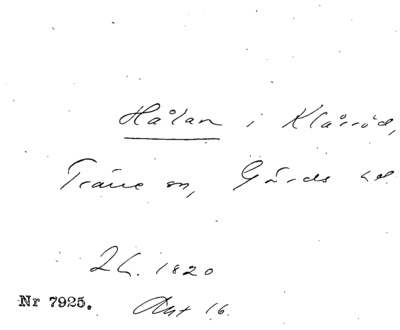 Hålan i Klåröd,
Träne sn, Gärds hd.
L. 1820
Nr 7925. Akt 16.